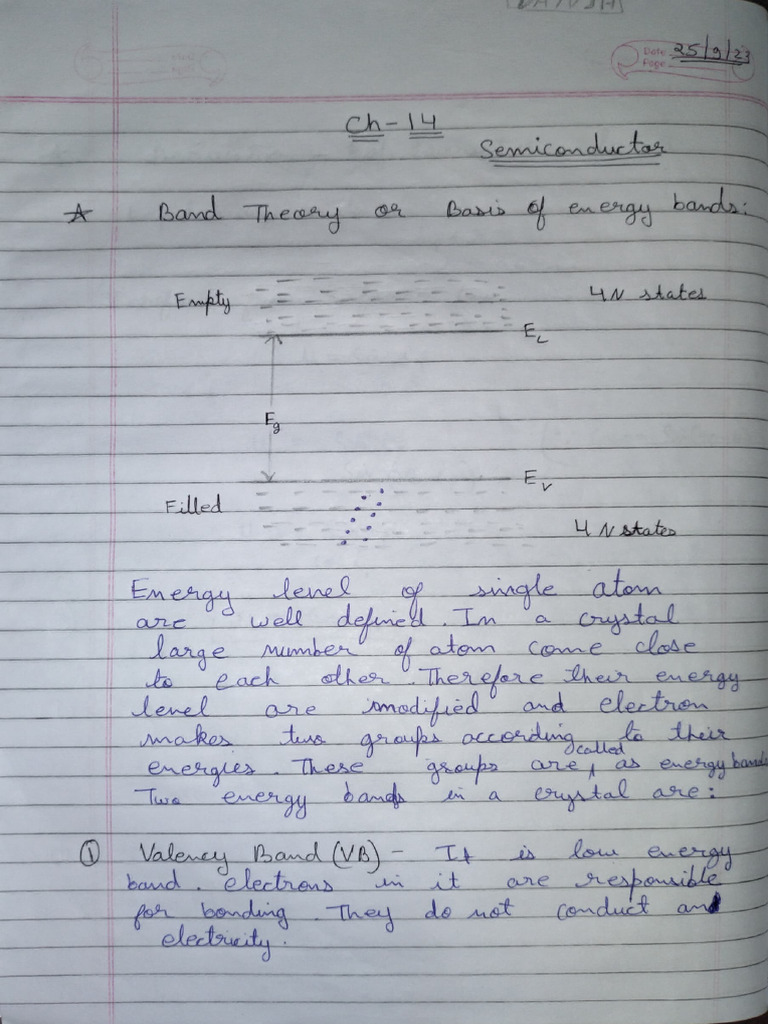 Date 25/9/23
Page
Ch-14
Semiconductor
☆ Band Theory or Basis of energy bands:
Empty 4N states
E_L
E_g
E_v
Filled
4N states
Energy level of single atom
are well defined. In a crystal
large number of atom come close
to each other. Therefore their energy
level are modified and electron
makes two groups according to their
energies. These groups are called as energy band
Two energy bands in a crystal are:
① Valency Band (VB) - It is low energy
band. electrons in it are responsible
for bonding. They do not conduct and
electricity.